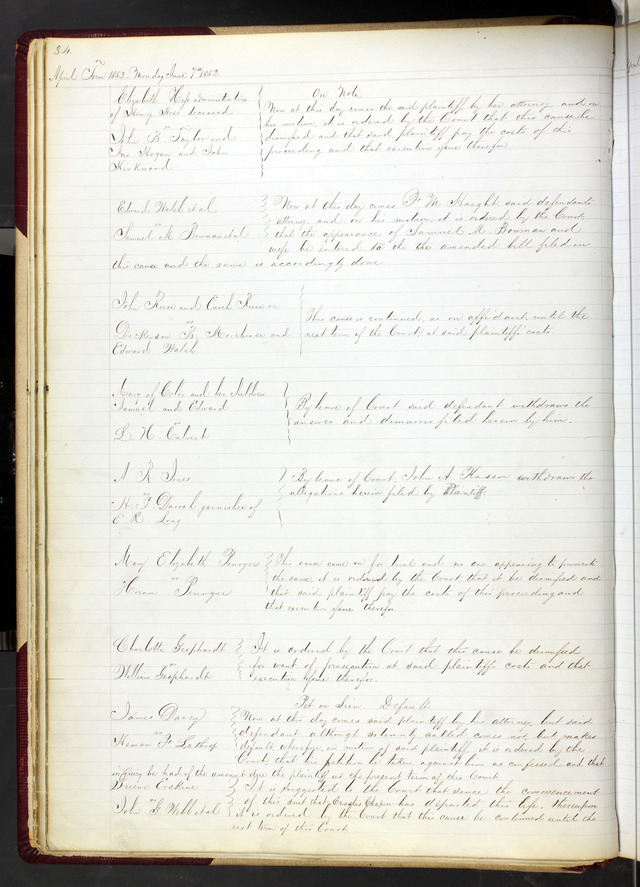 34.
April Term 1853. Monday June 7th 1852.
On Note
Elizabeth Hess administratrix of Henry Hess deceased
vs
John B. Taylor and
Hogan and John
Kirkwood
Now at this day comes the said plaintiff by her attorney and on
his motion, it is ordered by the Court that this cause be
dismissed and that said plaintiff pay the costs of this
proceeding and that execution issue therefor
Edward Walsh et al
vs
Samuel M. Bowman et al
Now at this day comes F. M. Haight said defendants
attorney and on his motion it is ordered by the Court
that the appearance of Samuel M Bowman and
wife be entered to the the amended bill filed in
this cause and the same is accordingly done
John Reese and Reese
vs
Dickerson B. Morehouse and
Edward Walsh
This cause is continued, as on affidavit until the
next term of the Court at said plaintiffs costs
Mary of Color and her children
Samuel and Edward
vs
L. H. Calvert
By leave of Court said defendant withdraws the
answer and demurrer filed herein by him.
A R Ives
vs
H. F. Darrah garnishee of
E R Long
By leave of Court, John A Kasson withdraws the
allegations herein filed by Plaintiff
Mary Elizabeth Penoyer
vs
Hiram Penoyer
This cause came on for trial and no one appearing to prosecute
the same, it is ordered by the Court that it be dismissed and
that said plaintiff pay the costs of this proceeding and
that execution issue therefor
Charlotte Gephardt
vs
William Gephardt
It is ordered by the Court that this cause be dismissed
for want of prosecution at said plaintiffs costs and that
execution issue therefor.
Pet on Lien Default
James Darcy
vs
Heman F. Lathrop
Now at this day comes said plaintiff by his attorney but said
defendant although solemnly called comes not but makes
default, wherefore on motion of said plaintiff, it is ordered by the
Court that his petition be taken against him as confessed and that
inquiry be had of the amount due the plaintiff at the present term of this Court
Greene Erskine
vs
John G. Webb et al
It is suggested to the Court that since the commencement
of this suit that Erastus Chapin has departed this life. Thereupon
it is ordered by the Court that this cause be continued until the
next term of this Court